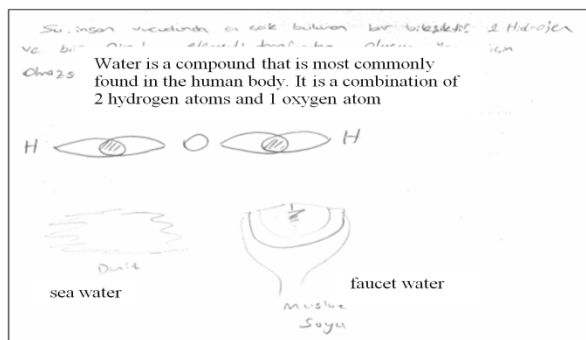 Su insan vucudunda en çok bulunan bir bileşiktir. 2 Hidrojen
ve bir
Water is a compound that is most commonly
found in the human body. It is a combination of
2 hydrogen atoms and 1 oxygen atom
H O H
Deniz
sea water
faucet water
Musluk
Soyu